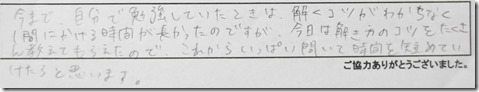 今まで、自分で勉強していたときは、解くコツがわからなく
1問にかける時間が長かったのですが、今日は解き方のコツをたくさ
ん教えてもらえたので、これからいっぱい聞いて時間を短めてい
けたらと思います。
ご協力ありがとうございました。